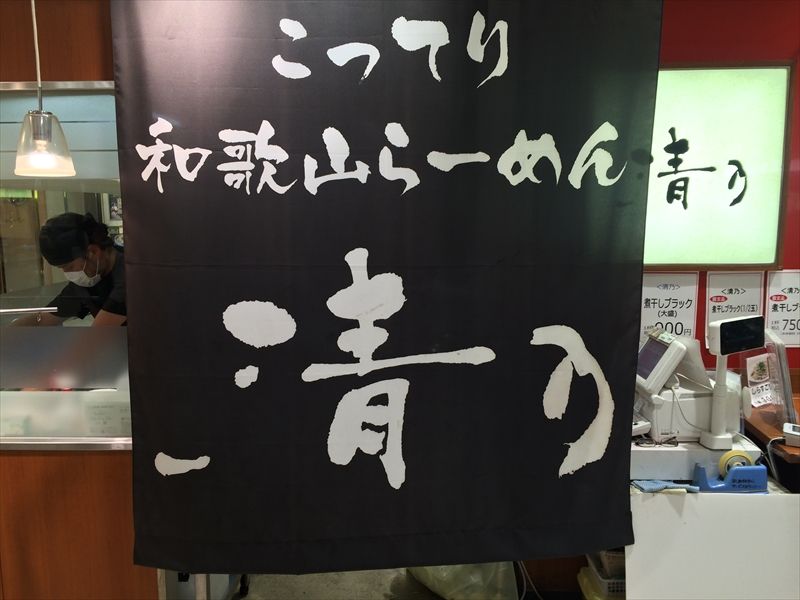 こってり
和歌山らーめん
清乃
清乃
<清乃>
煮干しブラック
(大盛)
<清乃>
煮干しブラック(1/2玉)
<清乃>
煮干しブ
750